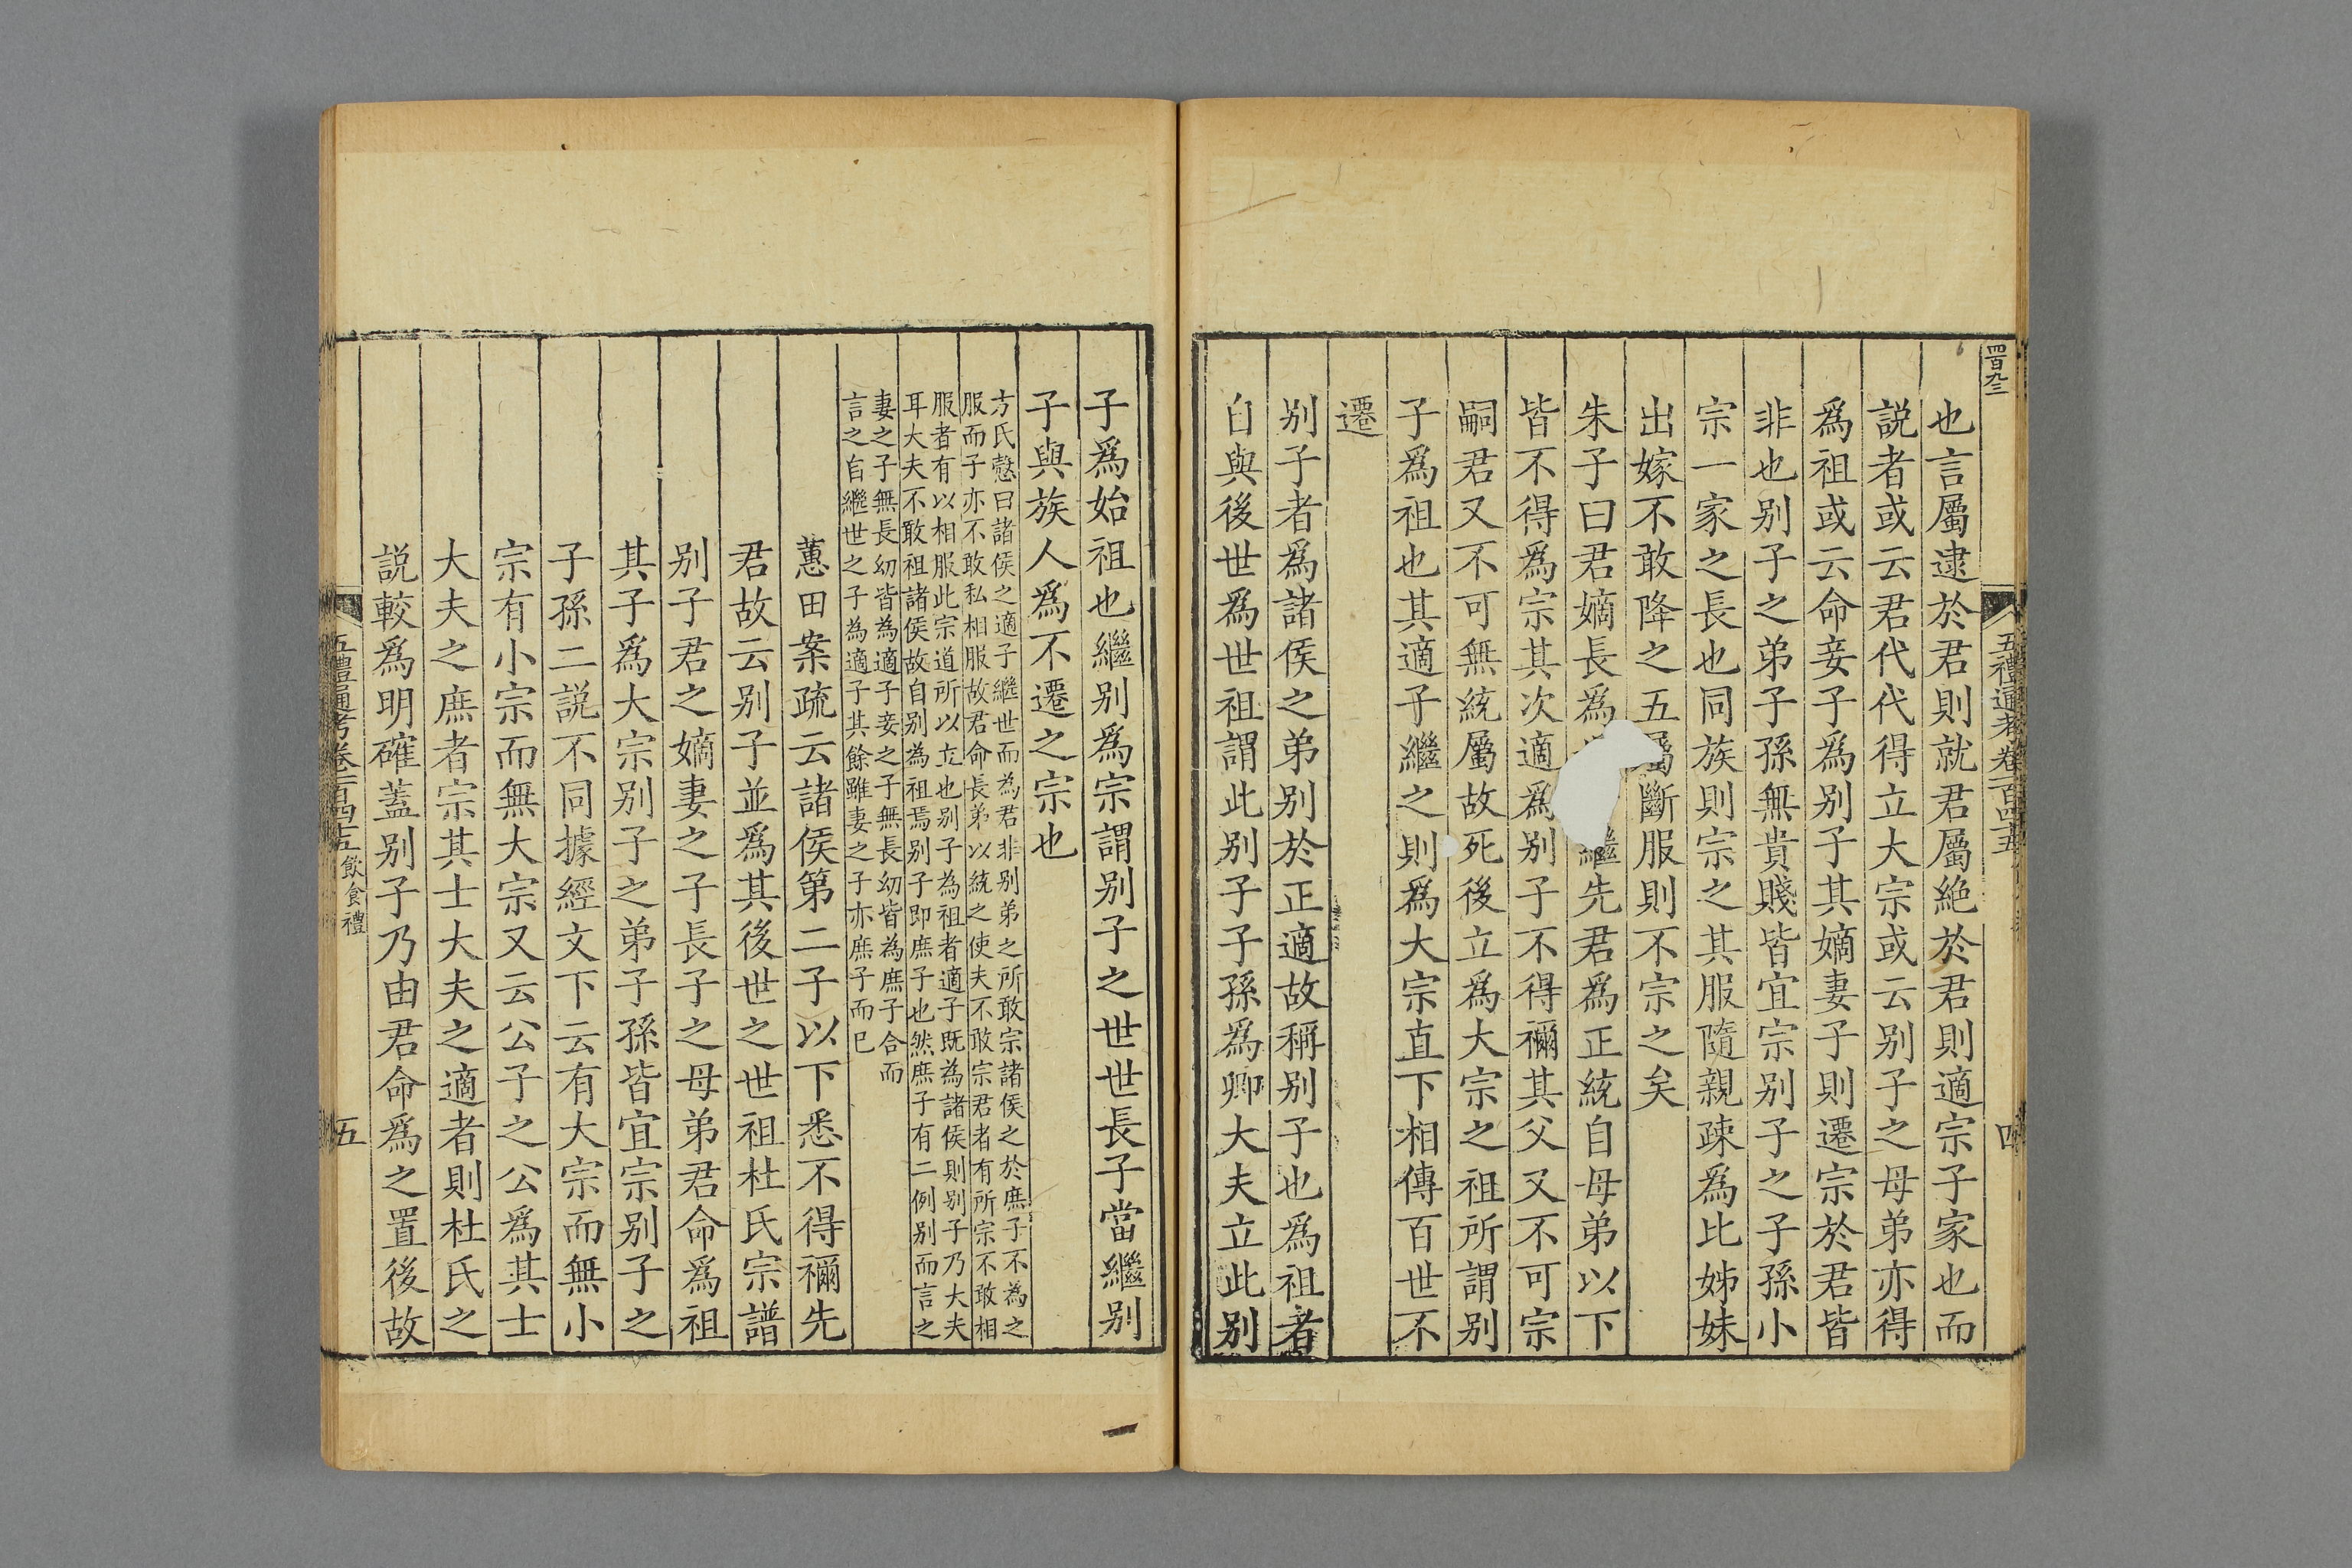 四百九三
五禮通考卷一百四十五
四
也言屬逮於君則就君屬絶於君則適宗子家也而
説者或云君代代得立大宗或云别子之母弟亦得
爲祖或云命妾子爲别子其嫡妻子則遷宗於君皆
非也别子之弟子孫無貴賤皆宜宗别子之子孫小
宗一家之長也同族則宗之其服隨親疎爲比姊妹
出嫁不敢降之五屬斷服則不宗之矣
朱子曰君嫡長爲 繼先君爲正統自母弟以下
皆不得爲宗其次適爲别子不得禰其父又不可宗
嗣君又不可無統屬故死後立爲大宗之祖所謂别
子爲祖也其適子繼之則爲大宗直下相傳百世不
遷
别子者爲諸侯之弟别於正適故稱别子也爲祖者
自與後世爲世祖謂此别子子孫爲卿大夫立此别
子爲始祖也繼别爲宗謂别子之世世長子當繼别
子與族人爲不遷之宗也
方氏慤曰諸侯之適子繼世而為君非别弟之所敢宗諸侯之於庶子不為之
服而子亦不敢私相服故君命長弟以統之使夫不敢宗君者有所宗不敢相
服者有以相服此宗道所以立也别子為祖者適子既為諸侯則别子乃大夫
耳大夫不敢祖諸侯故自别為祖焉别子即庶子也然庶子有二例别而言之
妻之子無長幼皆為適子妾之子無長幼皆為庶子合而
言之自繼世之子為適子其餘雖妻之子亦庶子而已
蕙田案疏云諸侯第二子以下悉不得禰先
君故云别子並爲其後世之世祖杜氏宗譜
别子君之嫡妻之子長子之母弟君命爲祖
其子爲大宗别子之弟子孫皆宜宗别子之
子孫二説不同據經文下云有大宗而無小
宗有小宗而無大宗又云公子之公爲其士
大夫之庶者宗其士大夫之適者則杜氏之
説較爲明確蓋别子乃由君命爲之置後故
五禮通考卷一百四十五 飲食禮
五